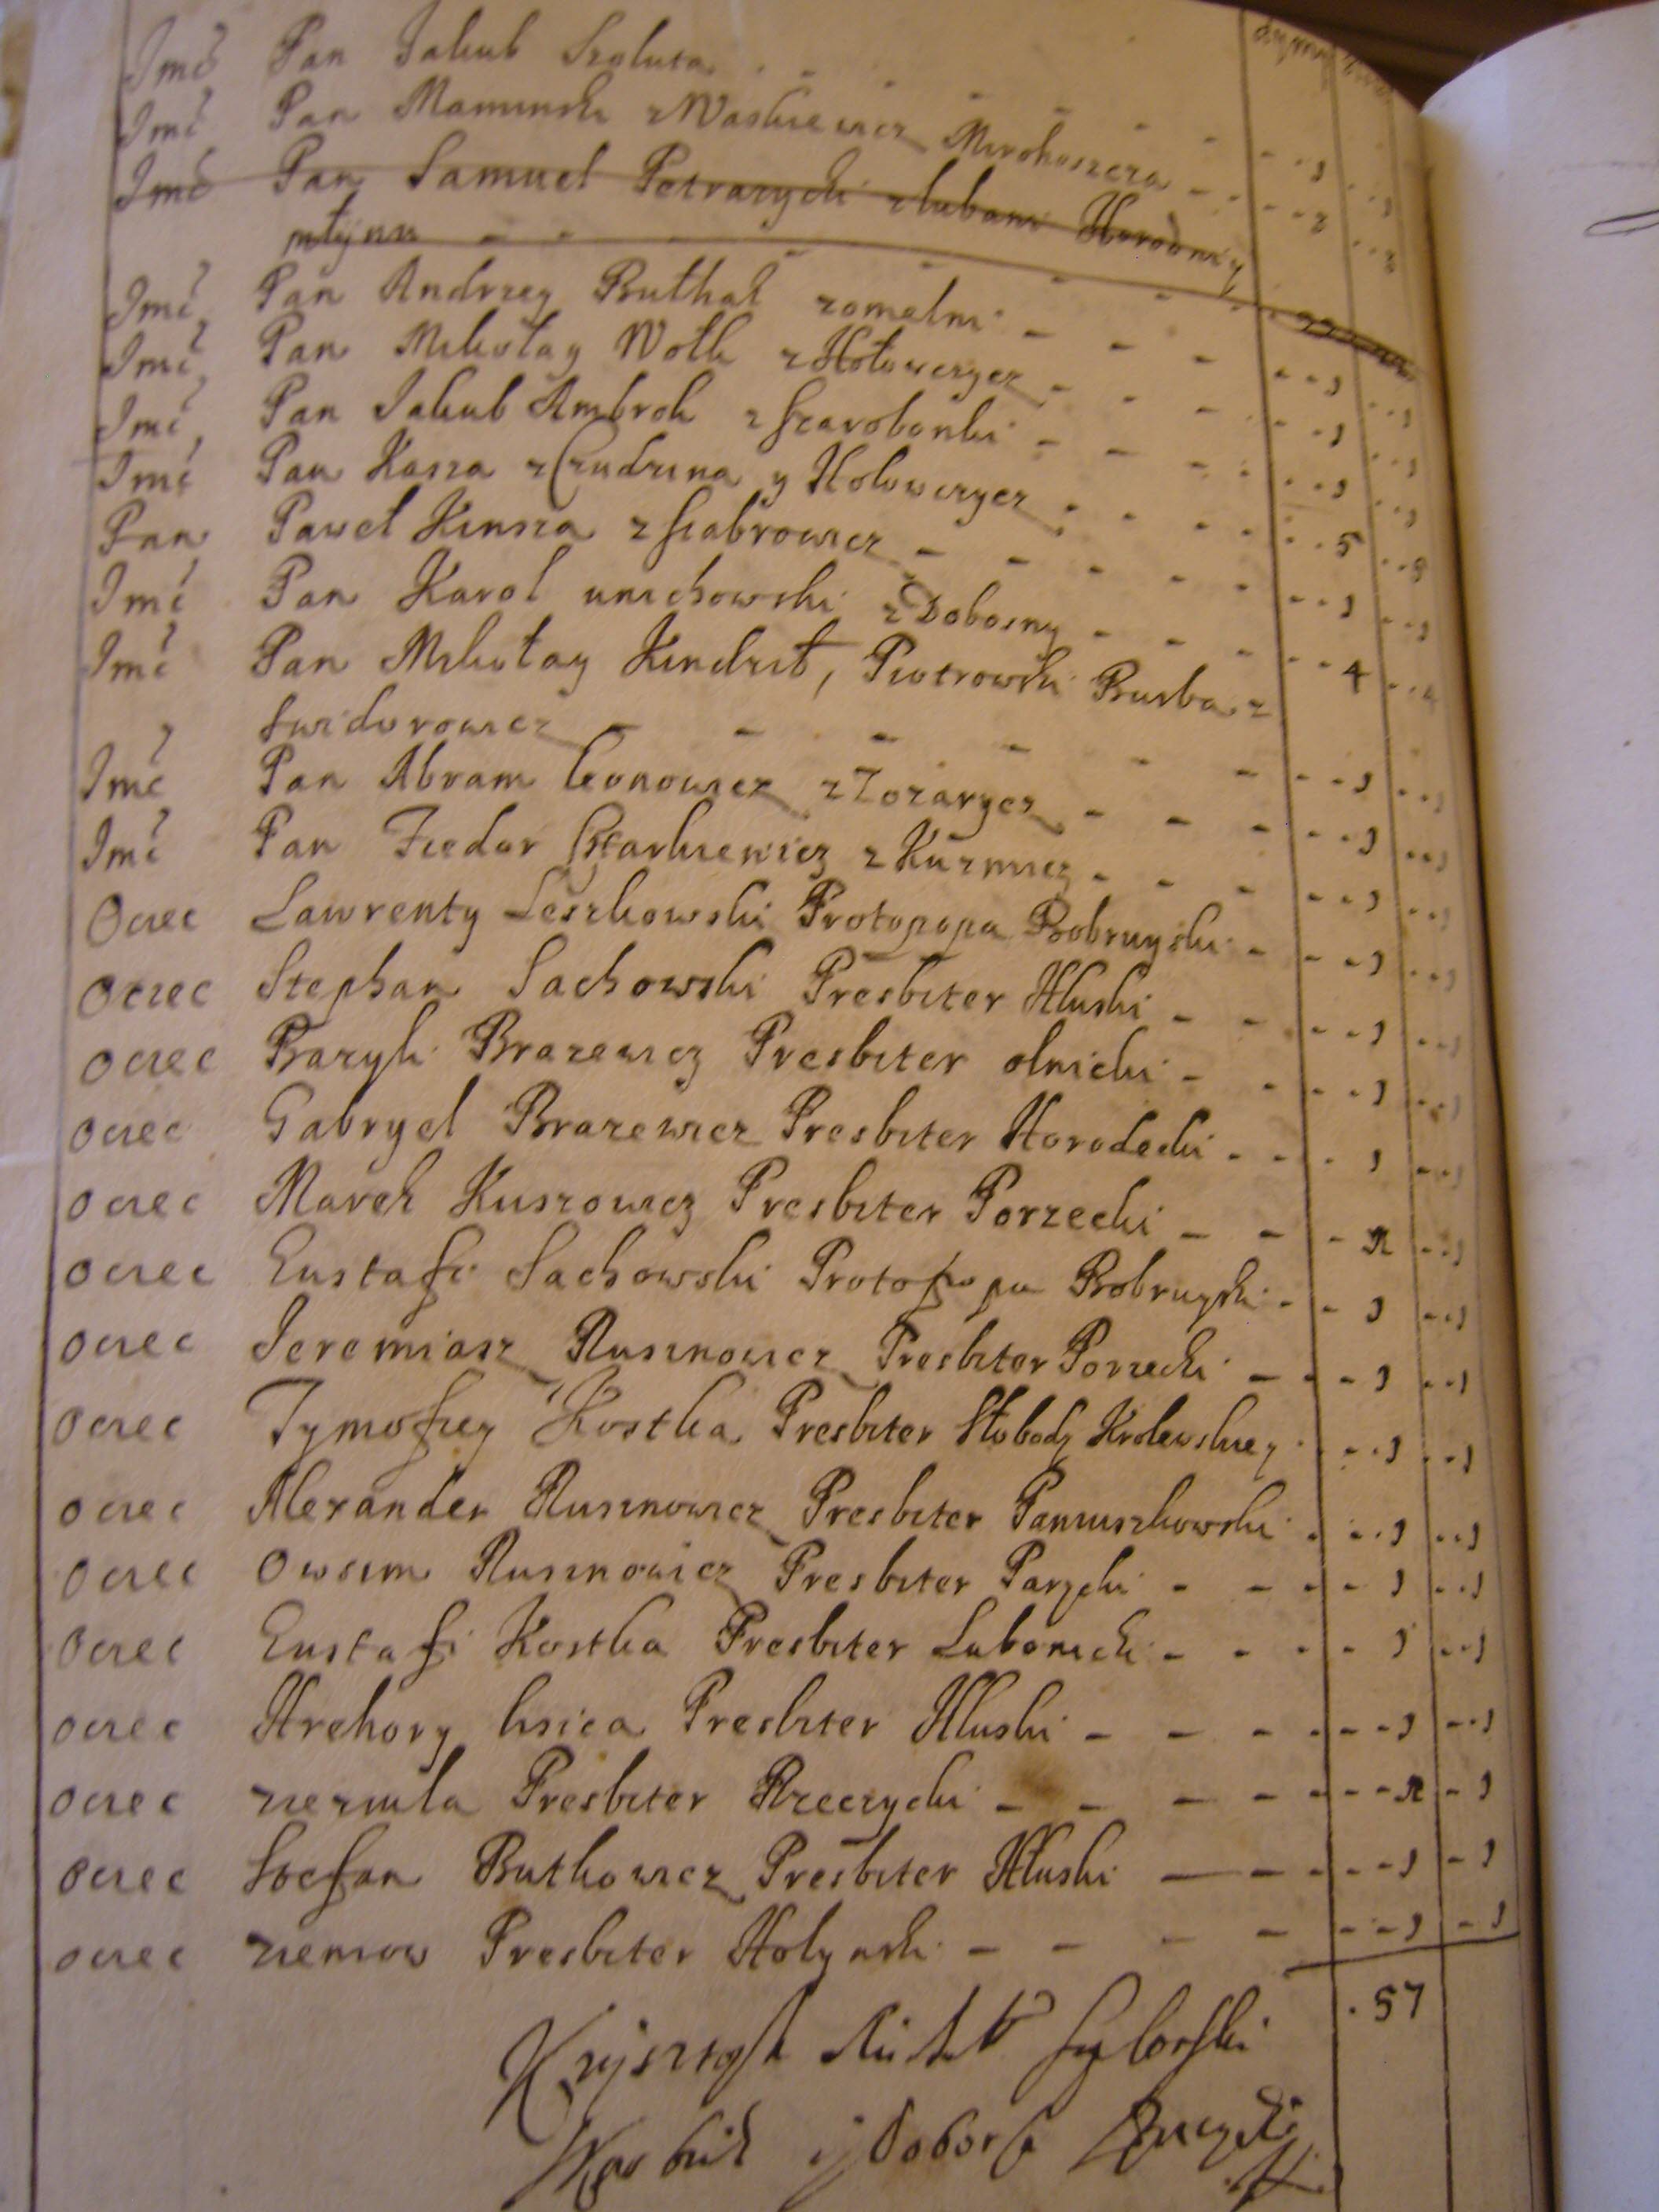 dymy
Imć Pan Jakub Szoluta . . . . . . . 1 . . 1
Imć Pan Mamunski z Waskiewicz Mirohoszcza - - . . 2 . . 2
Imć Pan Samuel Petrazycki z lubani Horodnicy
młynu - - - - - - -
Imć Pan Andrzey Buthak zomelni - - - - . . 1 . . 1
Imć Pan Mikołay Wołk z Hołowczycz - - - . . 1 . . 1
Imć Pan Jakub Ambrok z Szarobonki - - - . . 1 . . 1
Imć Pan Kasza z Czudzina y Hołowczycz . . . . . 5 . . 5
Pan Paweł Kinsza z Szabrowicz - - - - - . . 1 . . 1
Imć Pan Karol unichowski z Dobosny - - - . . 4 . . 4
Imć Pan Mikołay Kindził, Piotrowski Burba z
Swidorowicz - - - - - - . . 1 . . 1
Imć Pan Abram leonowicz z Tozarycz - - - . . 1 . . 1
Imć Pan Fiedor Starkiewicz z Kuzmicz - - - . . 1 . . 1
Ociec Lawrenty Leszkowski Protopopa Bobruyski - . . 1 . . 1
Ociec Stephan Sachowski Presbiter Hluski - - . . 1 . . 1
Ociec Bazyli Brazewicz Presbiter olnicki - - . . 1 . . 1
Ociec Gabryel Brazewicz Presbiter Horodecki - - . 1 . . 1
Ociec Marek Kuszowicz Presbiter Porzecki - - - . . 1
Ociec Eustafi Sachowski Protopopa Bobruyski - - 1 . . 1
Ociec Jeremiasz Rusinowicz Presbiter Porzecki - - - 1 . . 1
Ociec Tymofiey Kostka Presbiter Słobody Krolewskiey . . . 1 . . 1
Ociec Alexander Rusinowicz Presbiter Paniuszkowski . . . 1 . . 1
Ociec Owsim Rusinowicz Presbiter Parycki - - - - 1 . . 1
Ociec Eustafi Kostka Presbiter Lubonicki - - - - 1 . . 1
Ociec Hrehory lisica Presbiter Hluski - - - - - - 1 . . 1
Ociec Presbiter Rzeczycki - - - - - - - 1
Ociec Stefan Butkowicz Presbiter Hluski - - - - - 1 - 1
Ociec Presbiter Holynski - - - - - - 1 - 1
. 57
Krzysztof